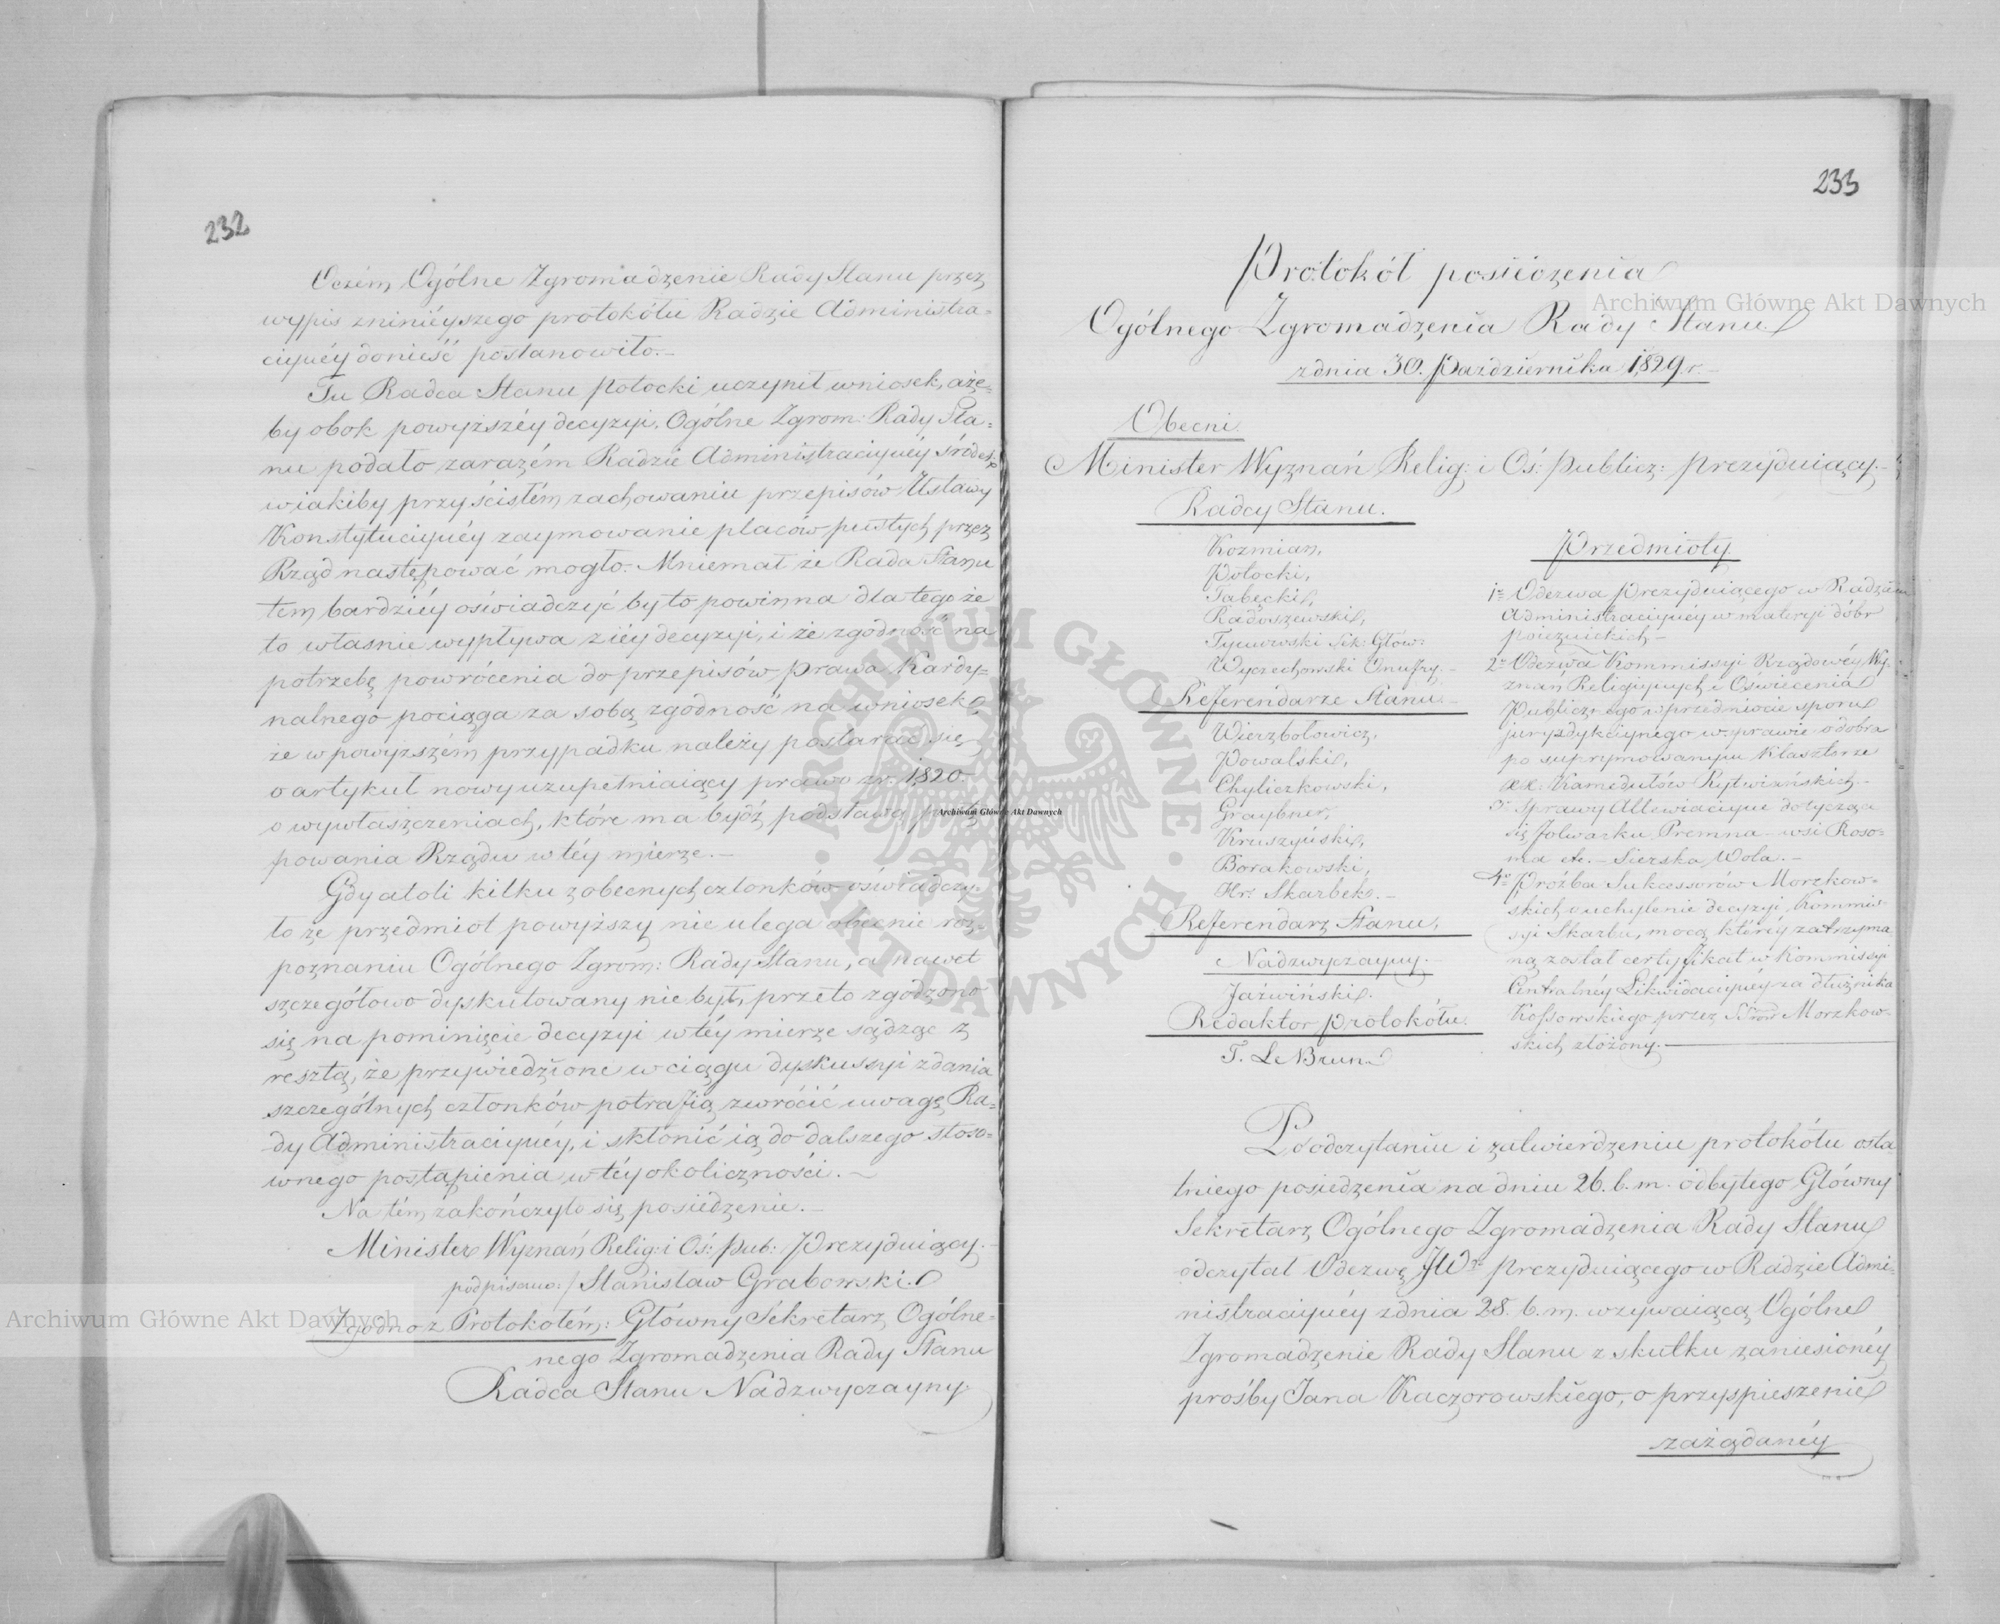 232
Oczém Ogólne Zgromadzenie Rady Stanu przez
wypis zninieyszego protokółu Radzie Administra=
cyinéy donieść postanowiło.–
Tu Radca Stanu Potocki uczynił wniosek, aże=
by obok powyższéy decyzyi, Ogólne Zgrom: Rady Sta=
nu podało zarazém Radzie Administracyinéy śródek
wiakiby przy ścisłém zachowaniu przepisów Ustawy
Konstytucyinéy zaymowanie placów pustych przez
Rząd następować mogło.– Mniemał że Rada Stanu
tem bardziéy oświadczyć by to powinna dla tego że
to własnie wypływa ziéy decyzyi, i że zgodność na
potrzebę powrócenia do przepisów prawa Kardy=
nalnego pociąga za sobą zgodność na wniosek
że w powyższém przypadku należy postarać się
o artykuł nowy uzupełniaiący prawo zr. 1820.
o wywłaszczeniach, które ma bydź podstawą
powania Rządu w téy mierze.–
Gdy atoli kilku z obecnych członków oświadczy=
ło że przedmiot powyższy nie ulega obecnie roz=
poznaniu Ogólnego Zgrom: Rady Stanu, a nawet
szczegółowo dyskutowany nie był, przeto zgodzono
się na pominięcie decyzyi w téy mierze sądząc z
resztą, że przywiedzione w ciągu dyskussyi zdania
szczególnych członków potrafią zwrócić uwagę Ra=
dy Administracyinéy, i skłonić ią do dalszego stoso=
wnego postąpienia w téy okoliczności.–
Na tém zakończyło się posiedzenie.–
Minister Wyznań Relig: i Oś: Pub: Prezyduiący.–
podpisano:/ Stanisław Grabowski.
Zgodno z Protokółem: Główny Sekretarz Ogólne=
nego Zgromadzenia Rady Stanu
Radca Stanu Nadzwyczayny
233
Protokół posiedzenia
Ogólnego Zgromadzenia Rady Stanu
zdnia 30. Października 1829 r.–
Obecni.
Minister Wyznań Relig: i Oś: Publicz: prezyduiący.–
Radcy Stanu.
Kozmian,
Potocki,
Tabęcki,
Radoszewski,
Tymowski Sek: Głów:
Wyczechowski Onufry.–
Referendarze Stanu.–
Wierzbołowicz,
Powalski,
Chyliczkowski,
Graybner,
Kruszyński,
Borakowski,
Hr: Skarbek.–
Referendarz Stanu,
Nadzwyczayny.
Jaźwiński.
Redaktor protokółu.
T. Le Brun.
Przedmioty
1º Odezwa Prezyduiącego w Radzie
Administracyinéy w materyi dóbr
poiezuickich.–
2º Odezwa Kommissyi Rządowéy Wy=
znań Religiynych i Oświecenia
Publicznego w przedmiocie sporu
jurysdykcyinego w sprawie o dobra
po suprymowanym Klasztorze
XX. Kamedułów Rytwiańskich.–
3º Sprawy Allewiacyine dotyczące
się folwarku Premna – wsi Roso=
ma etc. – Sierska Wola.–
4º Prożba Sukcessorów Morzkow=
skich o uchylenie decyzyi Kommis=
syi Skarbu, mocą któréy zatrzyma
ną został certyfikat w Kommissyi
Centralnéy Likwidacyinéy za dłużnika
Kossowskiego przez Morzkow=
skich złożony.–
Po odczytaniu i zatwierdzeniu protokółu osta
tniego posiedzenia na dniu 26. b.m. odbytego Główny
Sekretarz Ogólnego Zgromadzenia Rady Stanu
odczytał Odezwę JW° prezyduiącego w Radzie Admi=
nistracyinéy zdnia 28. b.m. wzywaiącą Ogólne
Zgromadzenie Rady Stanu z skutku zaniesionéy
prośby Jana Kaczorowskiego, o przyspieszenie
zażądanéy
Archiwum Główne Akt Dawnych
Archiwum Główne Akt Dawnych
Archiwum Główne Akt Dawnych
ARCHIWUM GŁÓWNE · AKT DAWNYCH ·